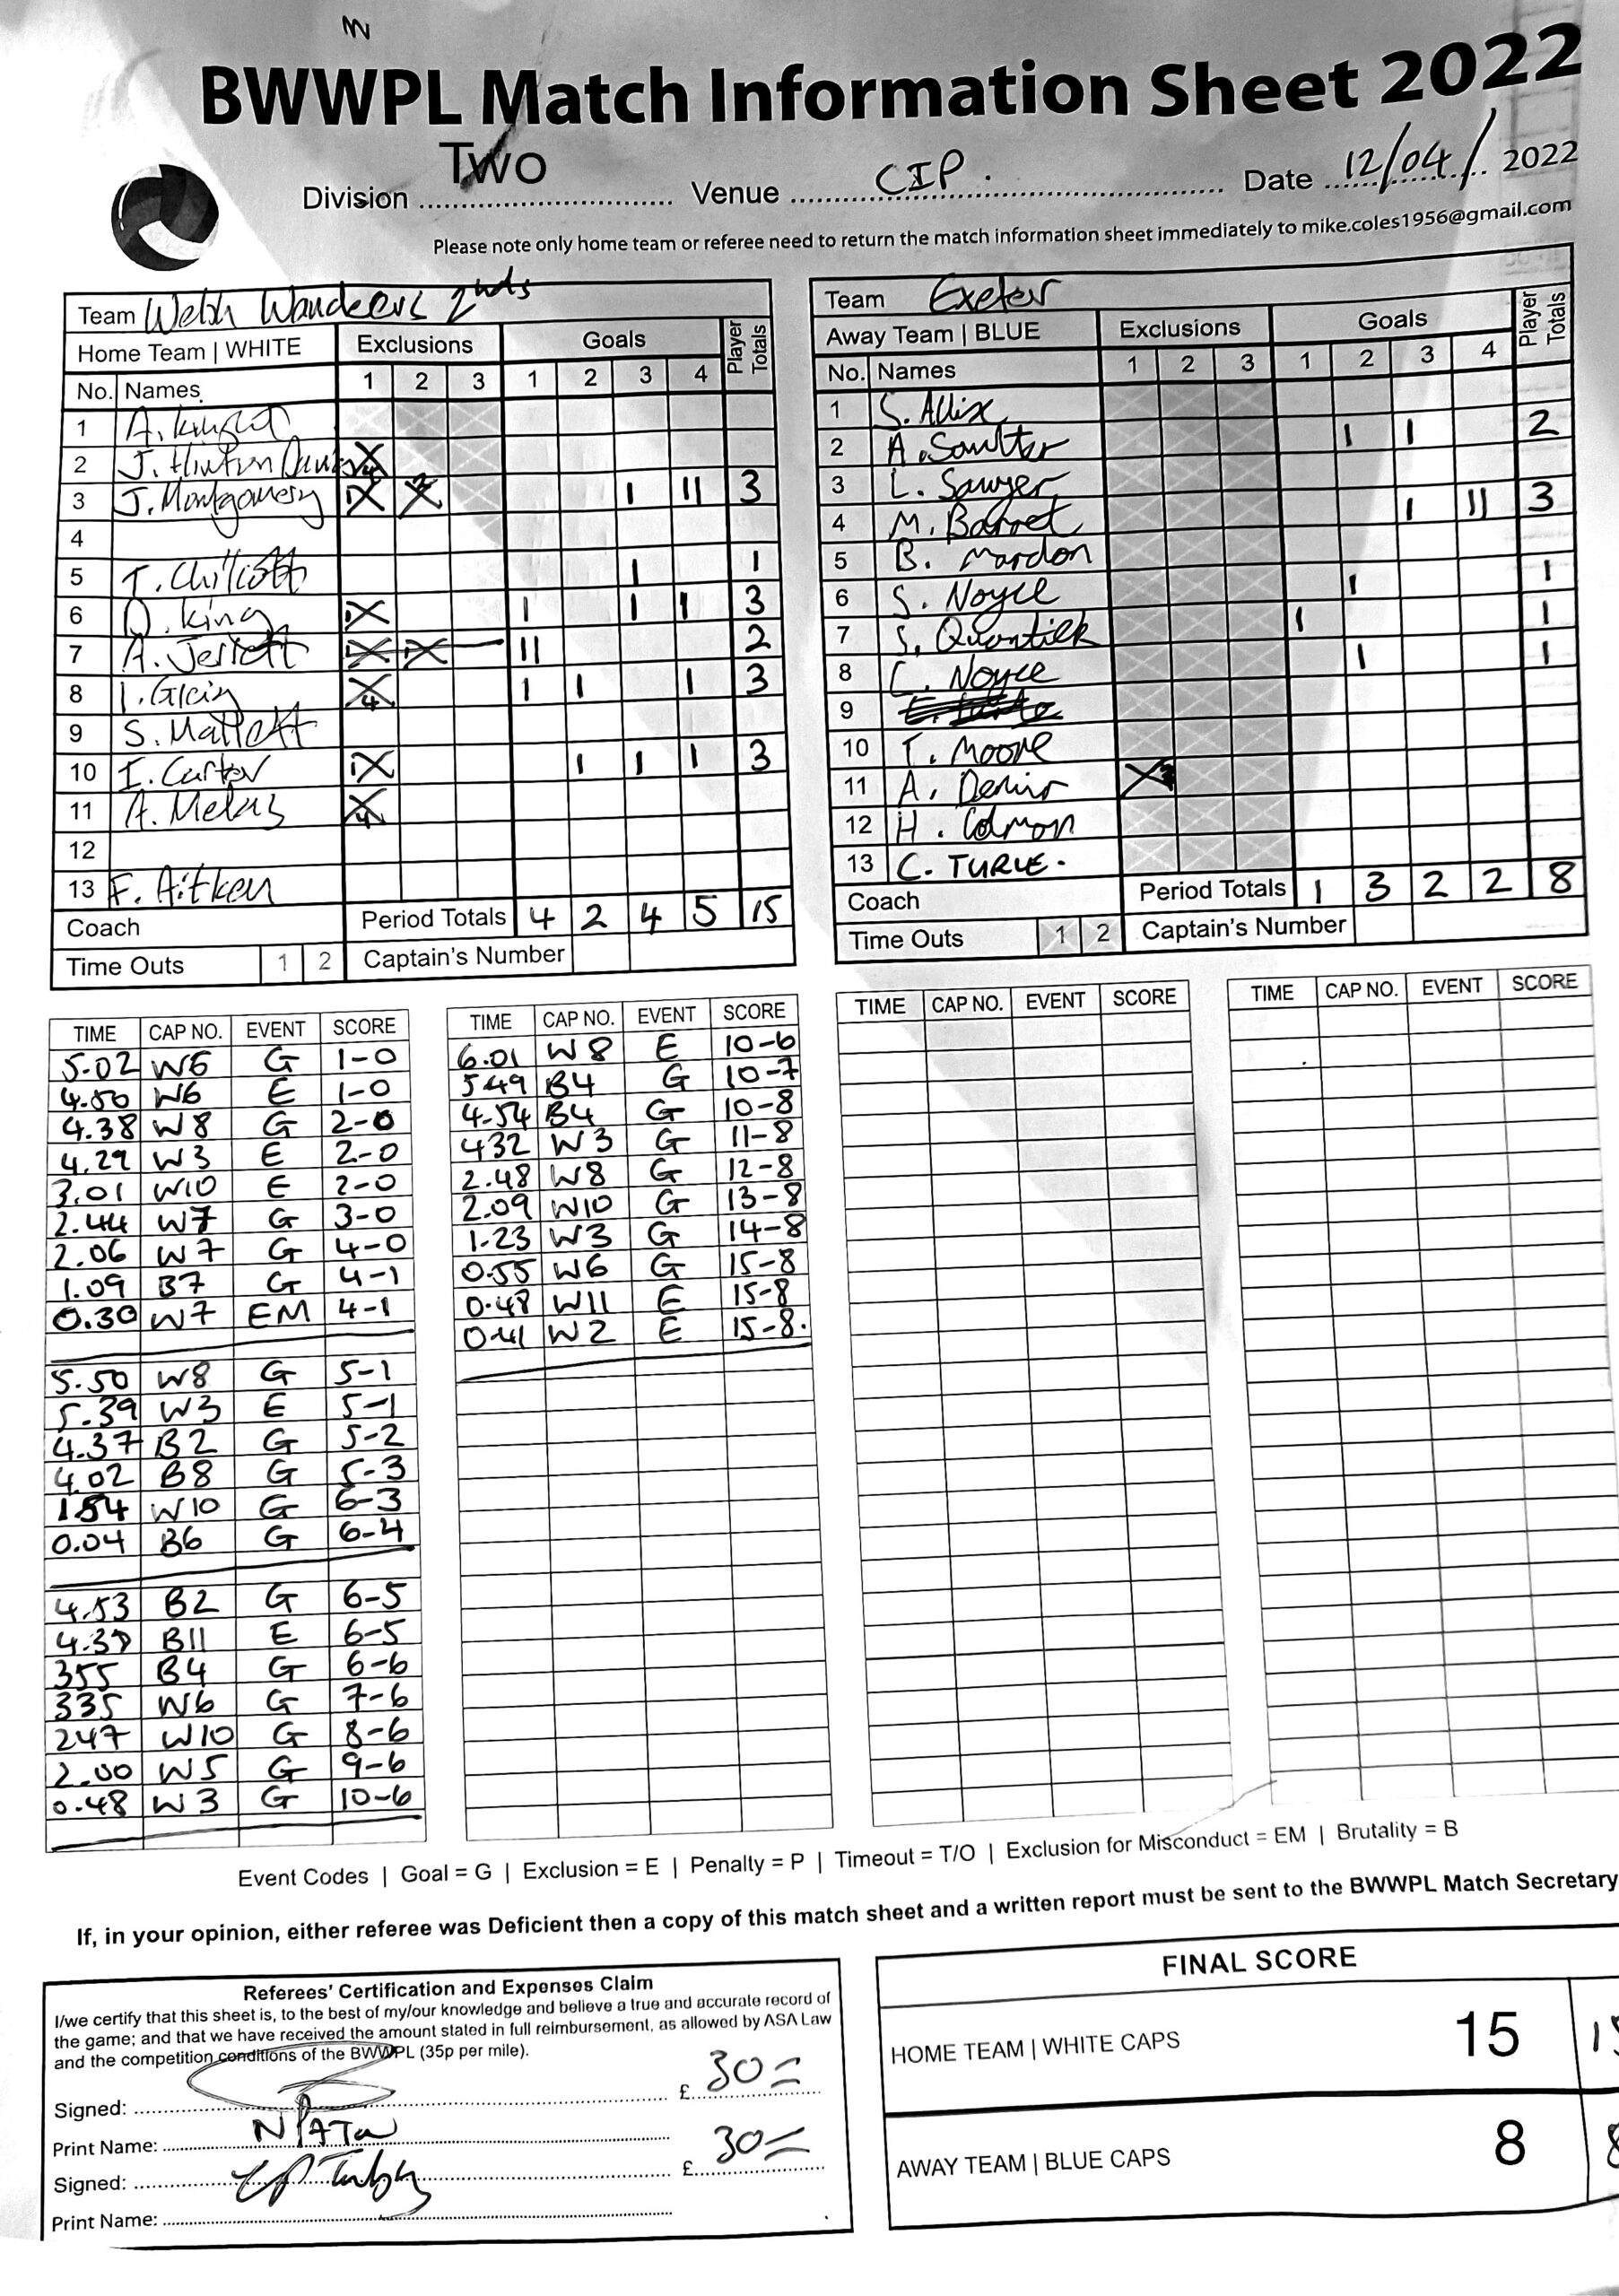 BWWPL Match Information Sheet 2022
Division Two Venue CIP. Date 12/04/ 2022
Please note only home team or referee need to return the match information sheet immediately to mike.coles1956@gmail.com
Team Welsh Wanderers 2nds
Home Team | WHITE Exclusions Goals Player Totals
No. Names 1 2 3 1 2 3 4
1 A. Knight
2 J. Hinton
3 J. Montgomery 1 11 3
4
5 T. Chilcott 1 1
6 D. King 1 1 1 3
7 A. Jerrett 11 2
8 I. 1 1 1 3
9 S. Mallett
10 I. Carter 1 1 1 3
11 A. Melas
12
13 F. Aitken
Coach Period Totals 4 2 4 5 15
Time Outs 1 2 Captain's Number
Team Exeter
Away Team | BLUE Exclusions Goals Player Totals
No. Names 1 2 3 1 2 3 4
1 S. Allix
2 A. Saulter 1 1 2
3 L. Sawyer
4 M. Barret 1 11 3
5 B. Mardon
6 S. Noyce 1 1
7 S. 1 1
8 C. Noyce 1 1
9
10 T. Moore
11 A. Demir
12 H. Colman
13 C. TURLE.
Coach Period Totals 1 3 2 2 8
Time Outs 1 2 Captain's Number
TIME CAP NO. EVENT SCORE
5.02 W6 G 1-0
4.50 W6 E 1-0
4.38 W8 G 2-0
4.29 W3 E 2-0
3.01 W10 E 2-0
2.44 W7 G 3-0
2.06 W7 G 4-0
1.09 B7 G 4-1
0.30 W7 EM 4-1
5.50 W8 G 5-1
5.39 W3 E 5-1
4.37 B2 G 5-2
4.02 B8 G 5-3
1.54 W10 G 6-3
0.04 B6 G 6-4
4.53 B2 G 6-5
B11 E 6-5
355 B4 G 6-6
335 W6 G 7-6
247 W10 G 8-6
2.00 W5 G 9-6
0.48 W3 G 10-6
TIME CAP NO. EVENT SCORE
6.01 W8 E 10-6
5.49 B4 G 10-7
4.54 B4 G 10-8
432 W3 G 11-8
2.48 W8 G 12-8
2.09 W10 G 13-8
1.23 W3 G 14-8
0.55 W6 G 15-8
0.48 W11 E 15-8
0.41 W2 E 15-8.
TIME CAP NO. EVENT SCORE
TIME CAP NO. EVENT SCORE
Event Codes | Goal = G | Exclusion = E | Penalty = P | Timeout = T/O | Exclusion for Misconduct = EM | Brutality = B
If, in your opinion, either referee was Deficient then a copy of this match sheet and a written report must be sent to the BWWPL Match Secretary
Referees' Certification and Expenses Claim
I/we certify that this sheet is, to the best of my/our knowledge and believe a true and accurate record of
the game; and that we have received the amount stated in full reimbursement, as allowed by ASA Law
and the competition conditions of the BWWPL (35p per mile).
Signed: £ 30=
Print Name:
Signed: £ 30=
Print Name:
FINAL SCORE
HOME TEAM | WHITE CAPS 15
AWAY TEAM | BLUE CAPS 8